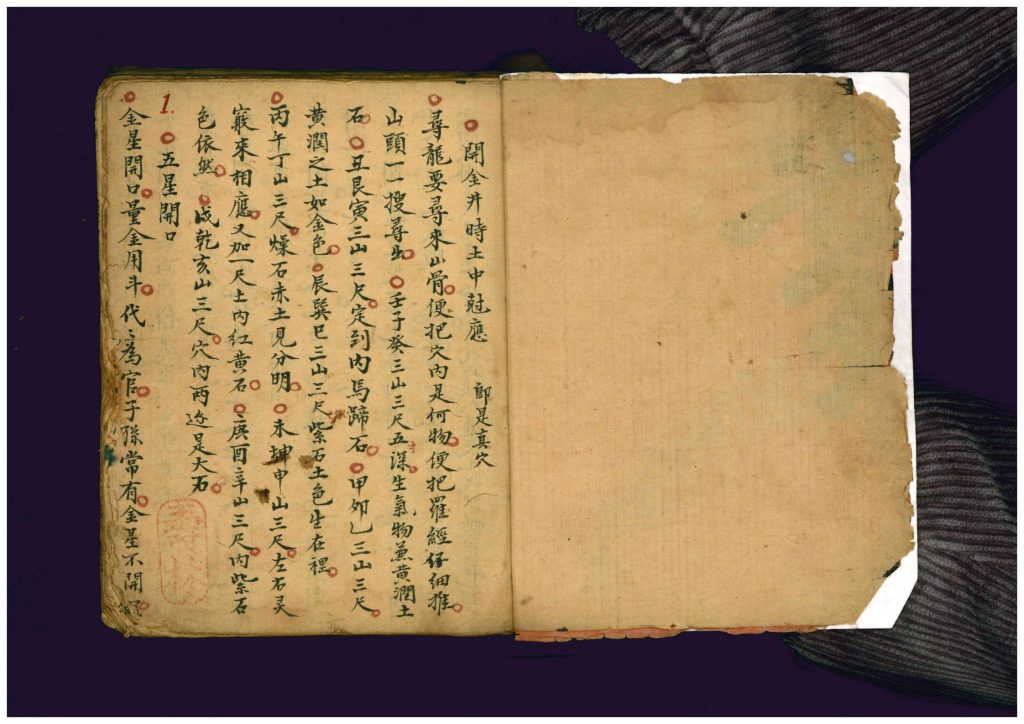 開金井時土中尅應 即是真穴
尋龍要尋來山骨便把穴內是何物便把羅經仔細推
山頭一一搜尋出 壬子癸三山三尺五寸深生氣物兼黃潤土
石 丑艮寅三山三尺定到內馬蹄石 甲卯乙三山三尺
黃潤之土如金色 辰巽巳三山三尺紫石土色生在裡
丙午丁山三尺燥石赤土見分明 未坤申山三尺左右灵
窾來相應又加一尺土內紅黃石 庚酉辛山三尺內紫石
色依然 戌乾亥山三尺穴內両边是大石
1. 五星開口
金星開口量金用斗代〻為官子孫常有金星不開